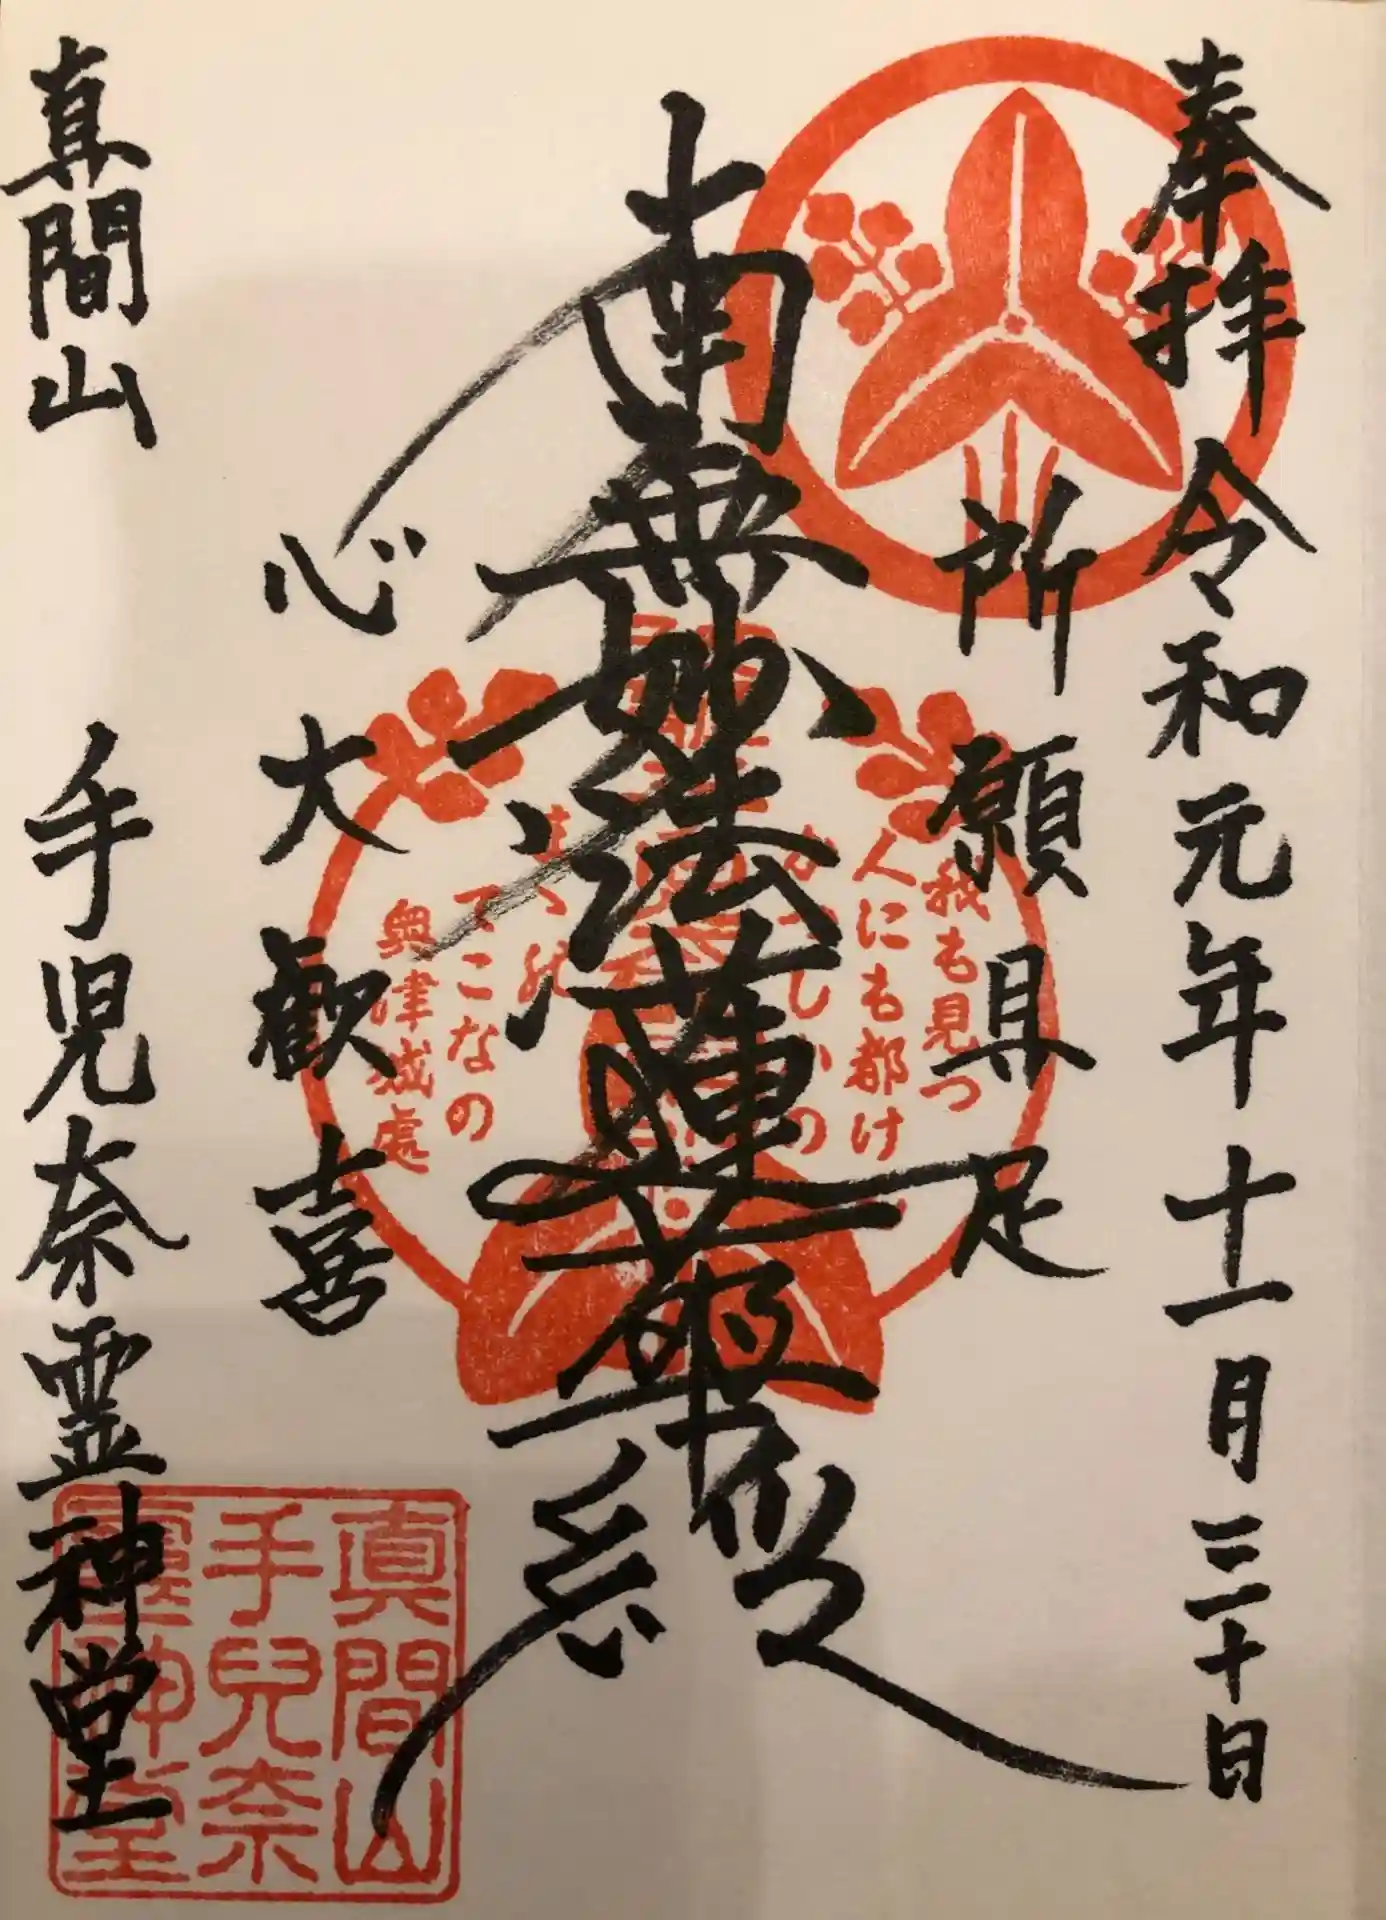 奉拝 令和元年十一月三十日
所願具足
南無妙法蓮華経
心大歓喜
真間山 手児奈霊神堂
我も見つ
人にも都け
かつしかの
てこなの
奥津城處
真間山
手兒奈
靈神堂